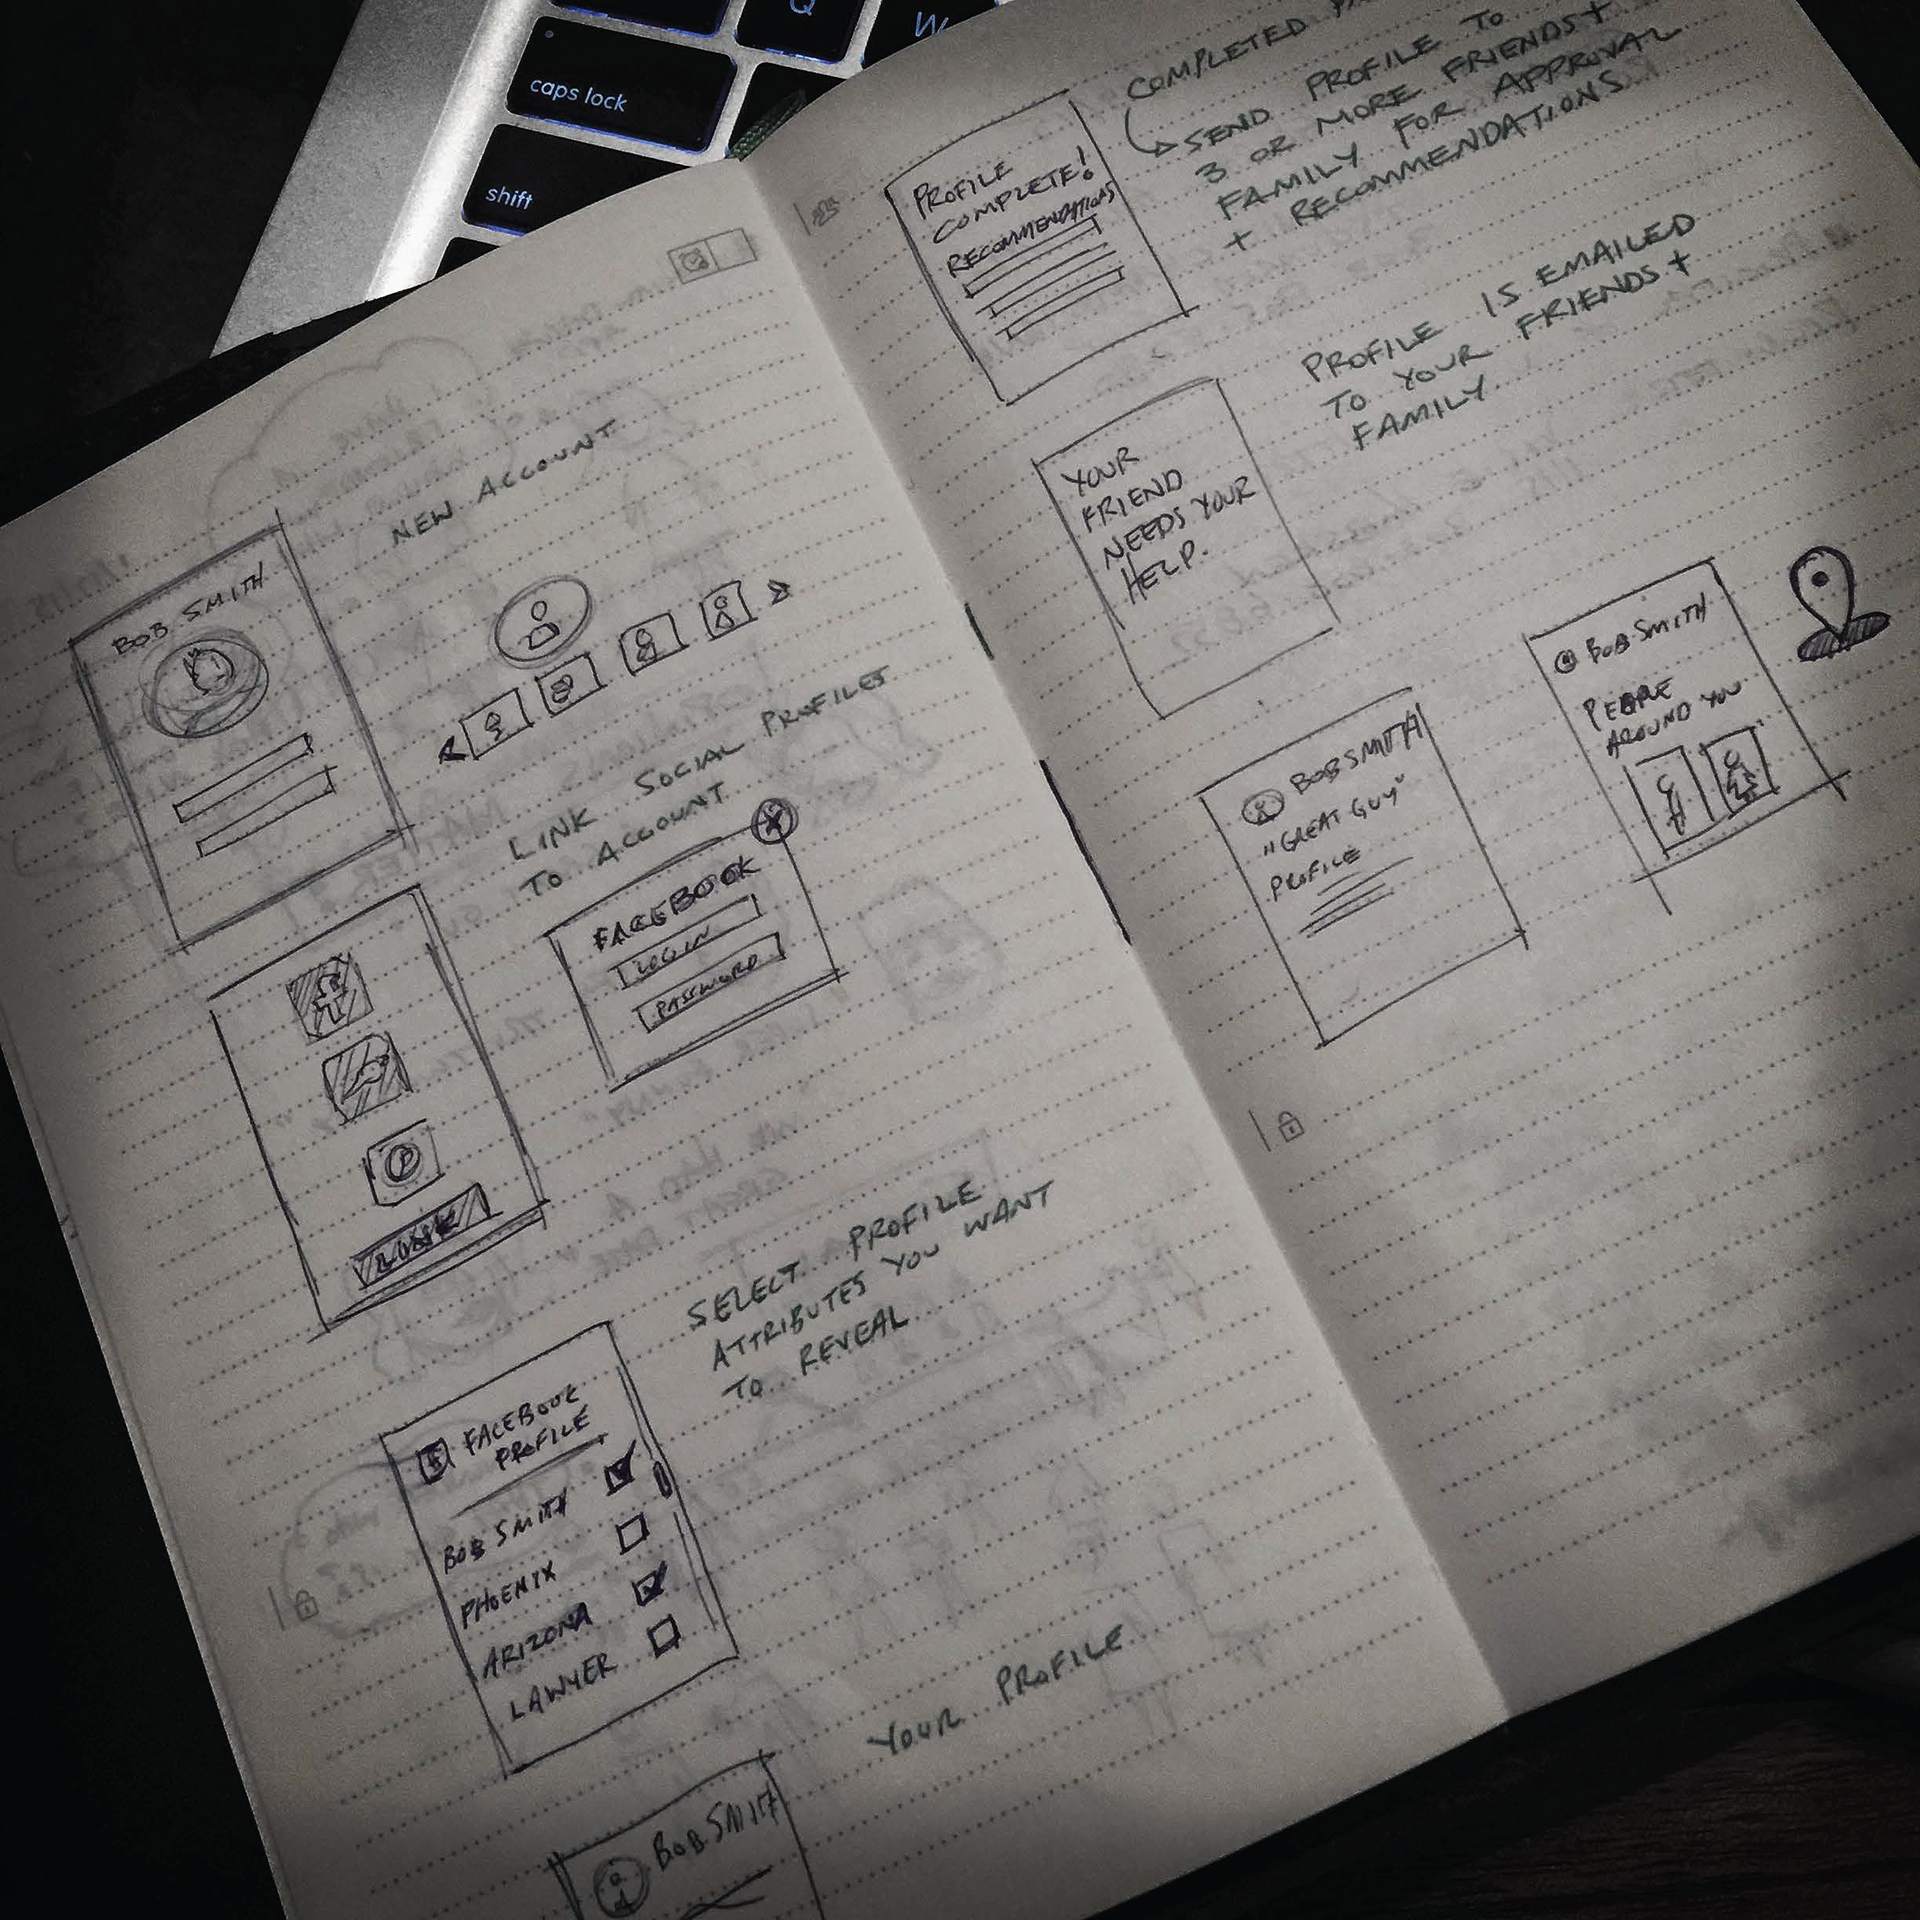 Q
W
caps lock
shift
NEW ACCOUNT
BOB SMITH
LINK SOCIAL PROFILES
TO ACCOUNT
FACEBOOK
LOGIN
PASSWORD
SELECT PROFILE
ATTRIBUTES YOU WANT
TO REVEAL
FACEBOOK
PROFILE
BOB SMITH
PHOENIX
ARIZONA
LAWYER
YOUR PROFILE
BOB SMITH
COMPLETED
SEND PROFILE TO
3 OR MORE FRIENDS +
FAMILY FOR APPROVAL
+ RECOMMENDATIONS
PROFILE
COMPLETE!
RECOMMENDATIONS
PROFILE IS EMAILED
TO YOUR FRIENDS +
FAMILY
YOUR
FRIEND
NEEDS YOUR
HELP.
BOB SMITH
"GREAT GUY"
PROFILE
BOB SMITH
PEOPLE
AROUND YOU